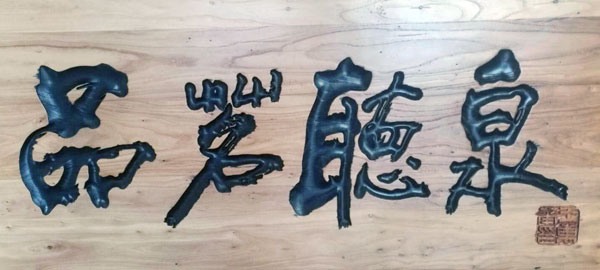 品茗聽泉